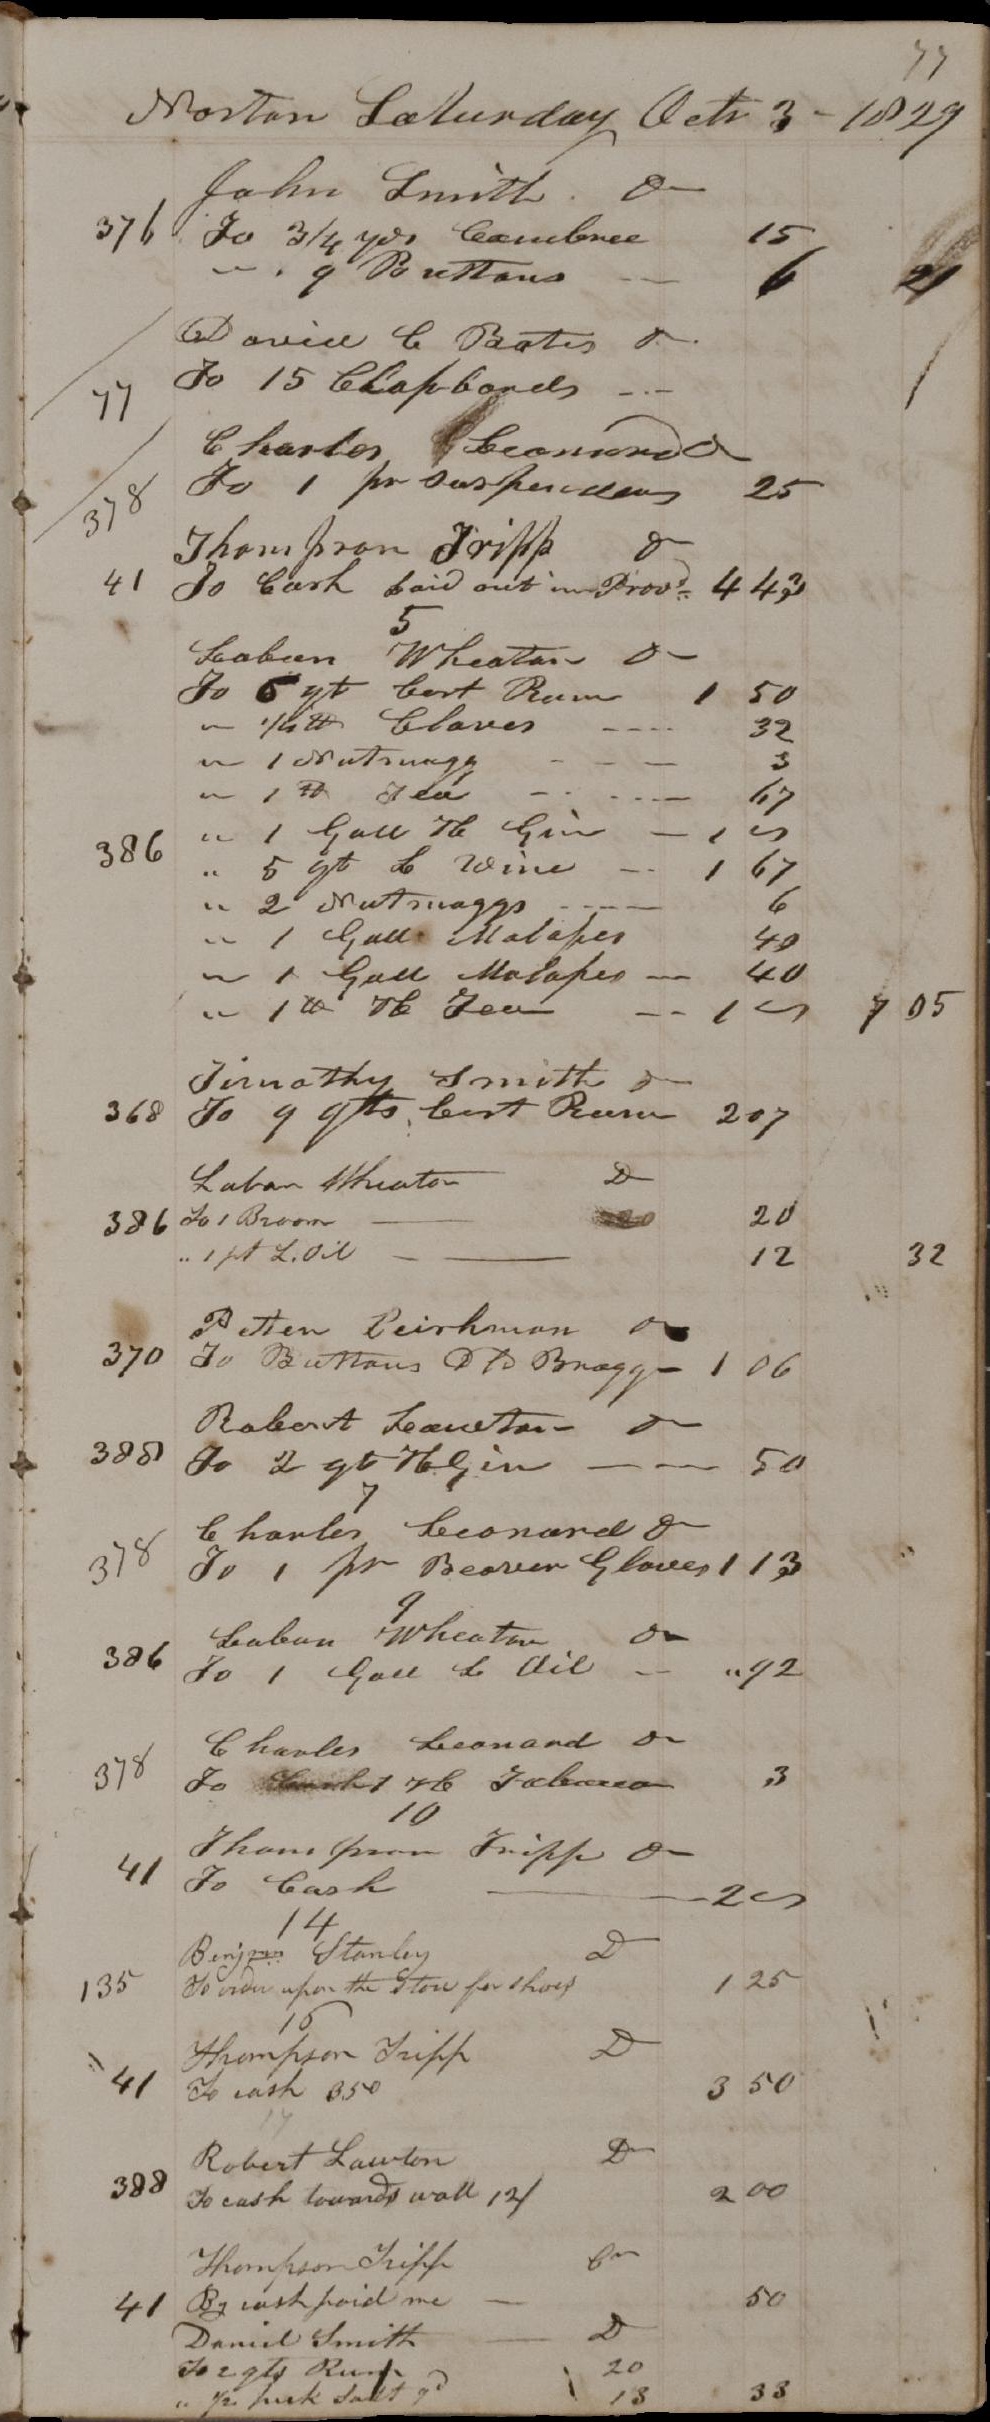 77
Norton Saturday Octr 3 - 1829
John Smith Dr
376 To 3/4 yds Cambree 15
" 9 Buttons 6 21
David C Bates Dr
77 To 15 Clapboards
Charles Leonard Dr
378 To 1 pr Suspenders 25
Thompson Tripp Dr
41 To Cash paid out in Provd 4 43
5
Laban Wheaton Dr
To 5 qt Cort Rum 1 50
" 1/4 lb Cloves 32
" 1 Nutmagg 3
" 1 lb Tea 67
386 " 1 Gall H Gin 1 "
" 5 qt L Wine 1 67
" 2 Nutmaggs 6
" 1 Gall Molasses 40
" 1 Gall Molasses 40
" 1 lb H Tea 1 " 7 05
Timothy Smith Dr
368 To 9 qts Cort Rum 2 07
Laban Wheaton D
386 To 1 Broom 20
" 1 pt L. Oil 12 32
Dr
370 To Buttons Bragg 1 06
Robert Lawton Dr
388 To 2 qt H Gin 50
7
Charles Leonard Dr
378 To 1 pr Beaver Gloves 1 13
9
Laban Wheaton Dr
386 To 1 Gall L Oil " 92
Charles Leonard Dr
378 To 1 Tobacco 3
10
Thompson Tripp Dr
41 To Cash 2 "
14
Benjmn Stanley D
135 To order upon the Store for shoes 1 25
16
Thompson Tripp D
41 To cash 350 3 50
17
Robert Lawton Dr
388 To cash towards wall 12/ 2 00
Thompson Tripp Cr
41 By cash paid me 50
Daniel Smith D
To 2 qts Rum 20
" 1/2 peck Salt 9d 13 33